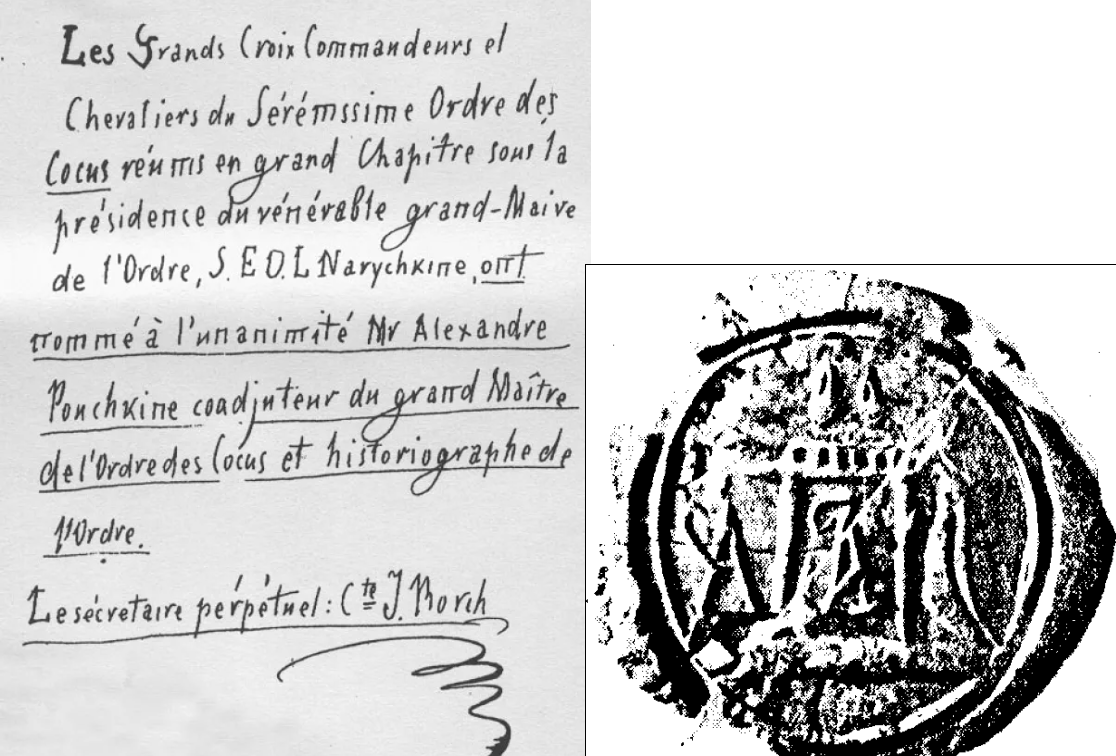 Les Grands Croix Commandeurs et
Chevaliers du Sérémssime Ordre des
Cocus réunis en grand Chapître sous la
présidence du vénérable grand-Maive
de l'Ordre, S. E D. L Narychkine, ont
nommé à l'unanimité Mr Alexandre
Ponchkine coadjuteur du grand Maître
de l'Ordre des Cocus et historiographe de
l'Ordre.
Le sécretaire perpétuel: Cte J. Borch